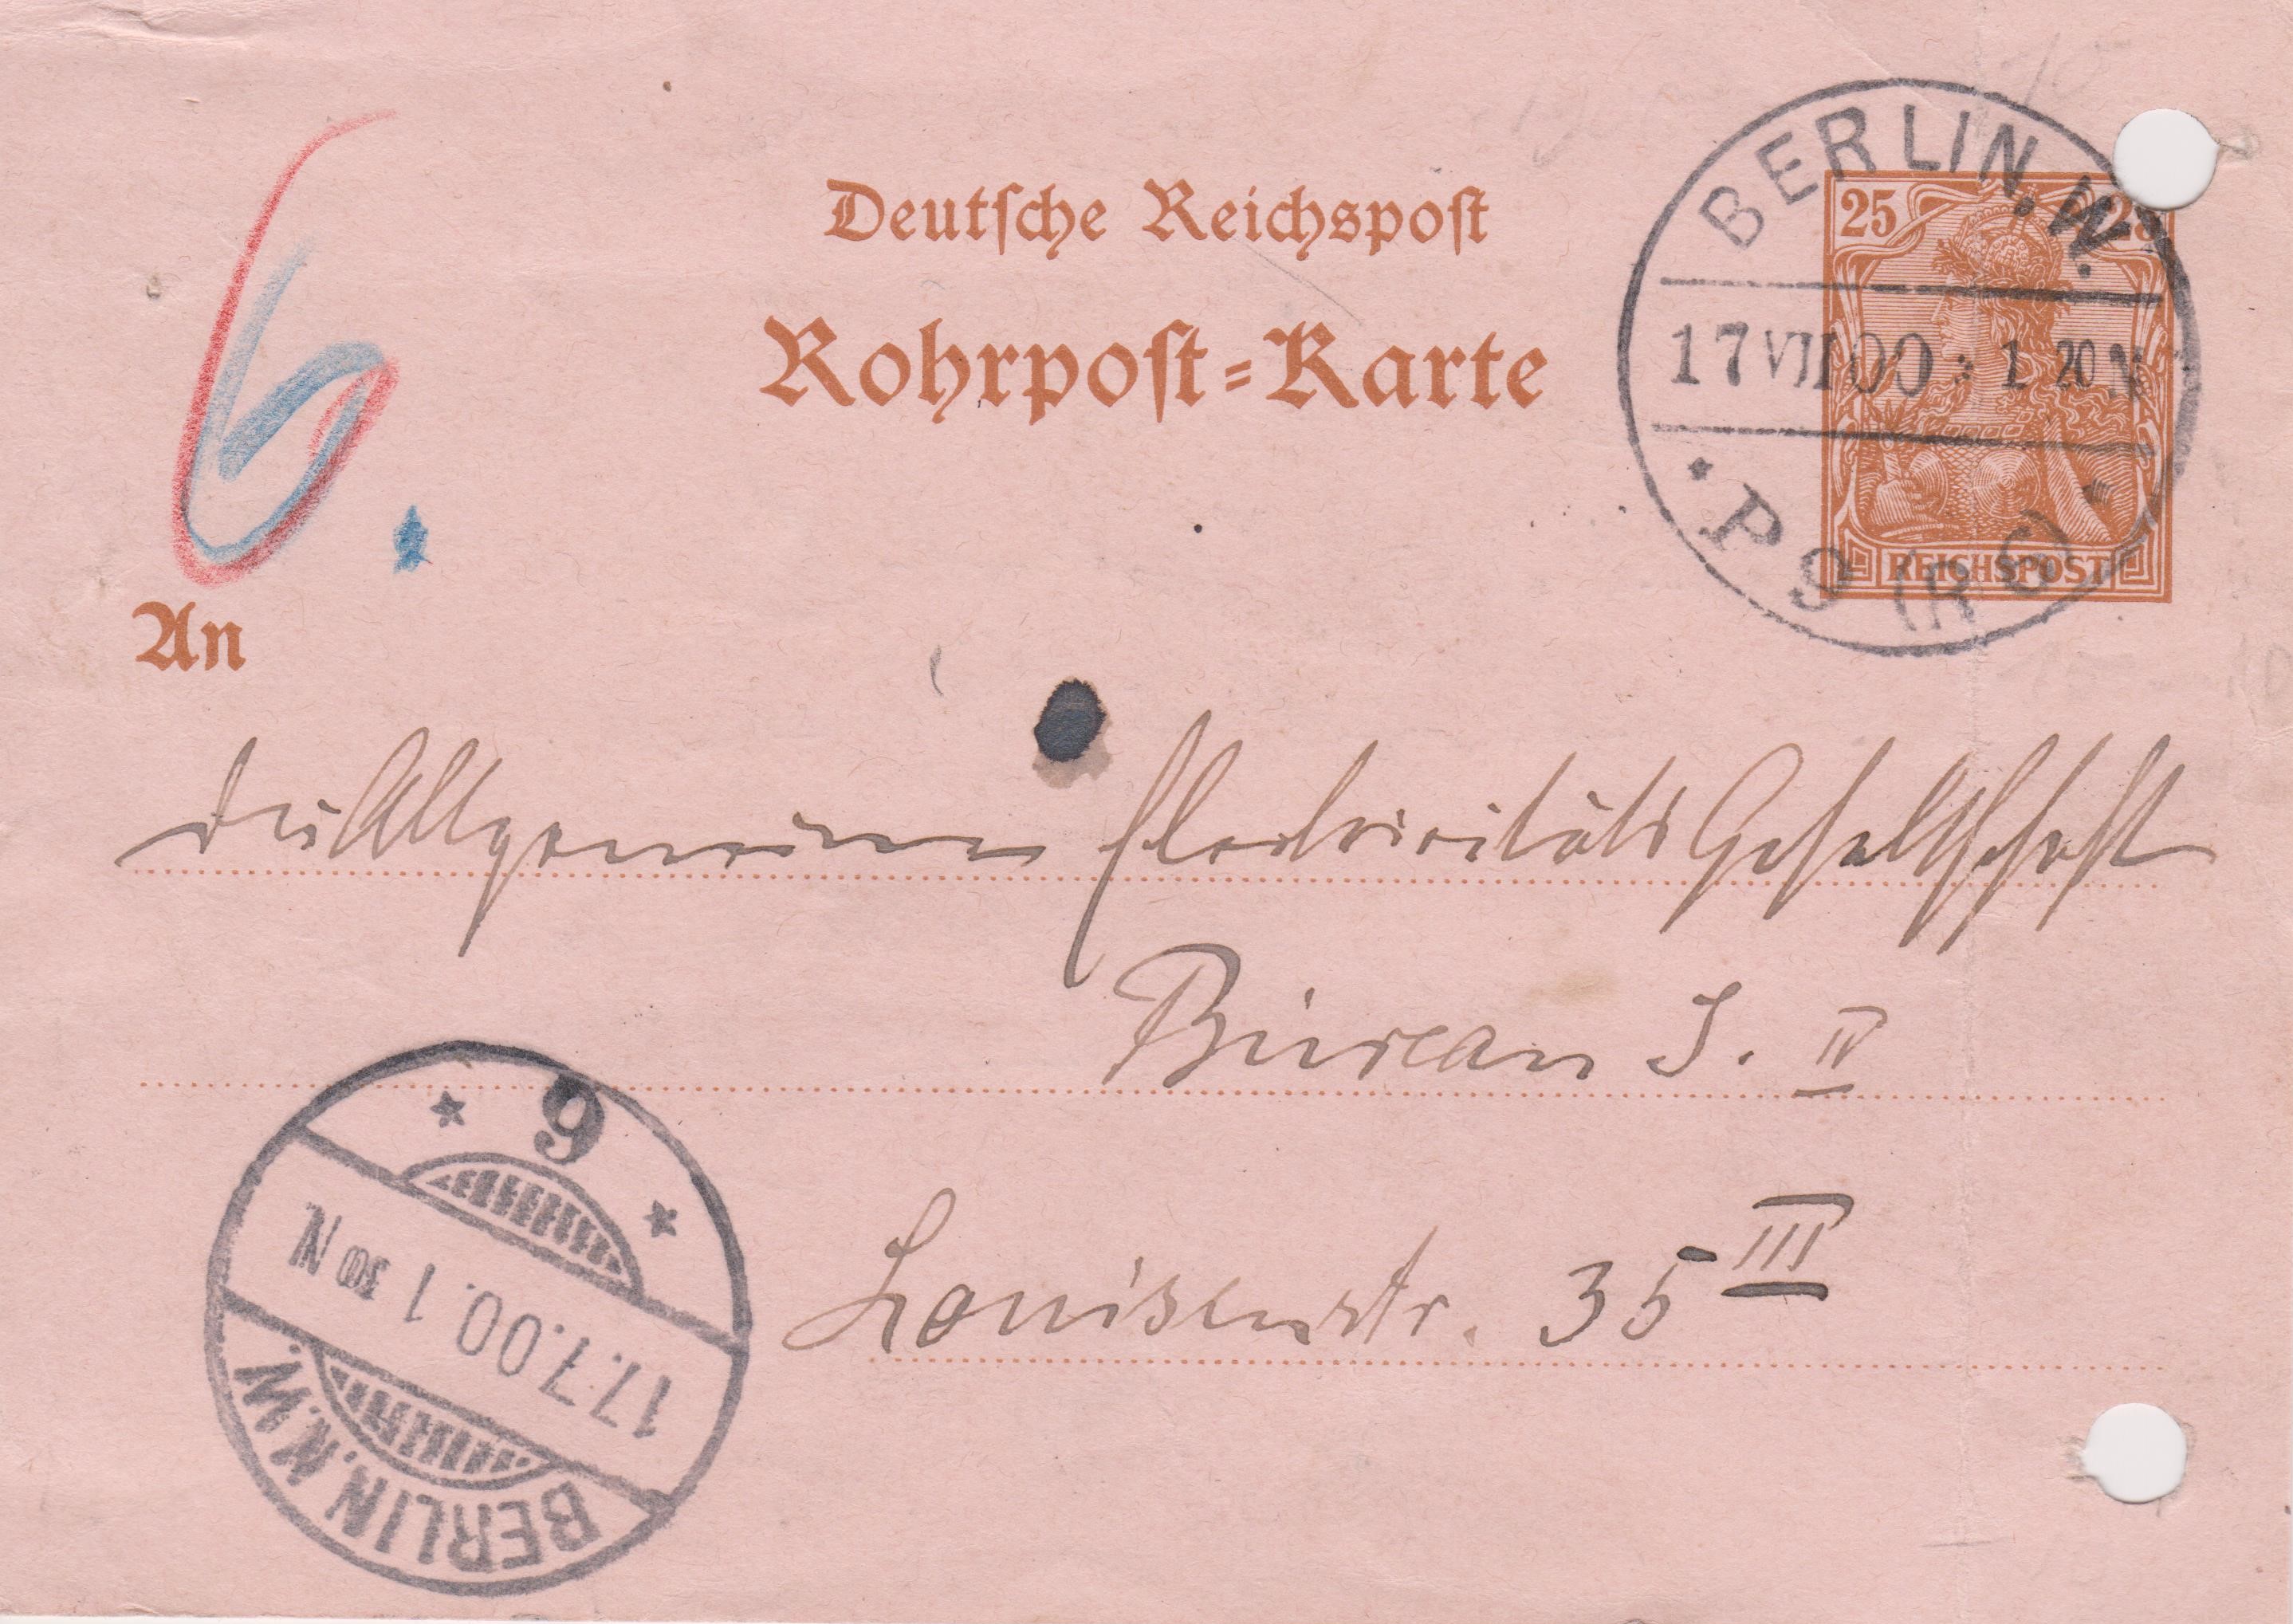 6.
Deutsche Reichspost
Rohrpost-Karte
BERLIN.W.
17 VII 00 1. 20 N
* P 9 (R 6) *
25 25
REICHSPOST
An
die Allgemeine Electricitäts Gesellschaft
Büreau J. IV
Louisenstr. 35 III
BERLIN.N.W.
17.7.00.1 30 N.
* 6 *